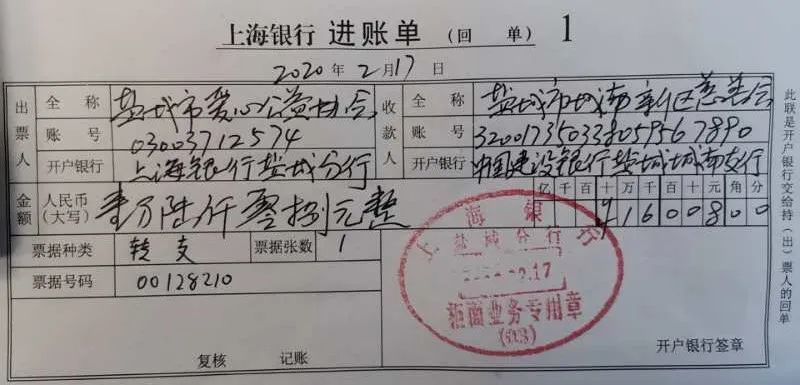 上海银行 进账单 (回 单) 1
2020 年 2 月 17 日
出票人 全称 盐城市爱心公益协会 收款人 全称 盐城市城南新区慈善会
账号 03003712574 账号 32001735033805956 7890
开户银行 上海银行盐城分行 开户银行 中国建设银行盐城城南支行
金额 人民币(大写) 壹万陆仟零捌元整 亿千百十万千百十元角分
¥1600800
票据种类 转支 票据张数 1
票据号码 00128210
上海银行
盐城分行
柜面业务专用章
(03)
复核 记账 开户银行签章
此联是开户银行交给持(出)票人的回单